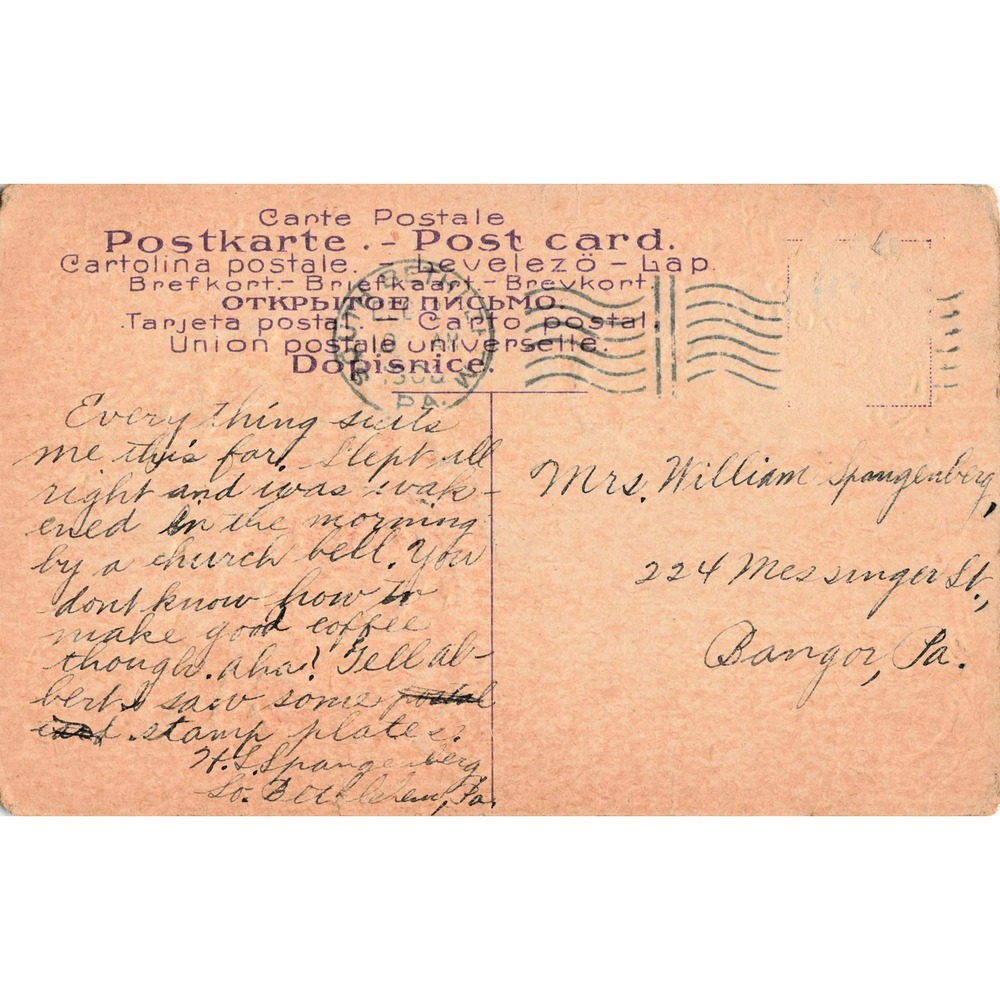 Carte Postale
Postkarte . – Post card.
Cartolina postale. – Levelezö – Lap.
Brefkort. – Briefkaart. – Brevkort.
ОТКРЫТОЕ ПИСЬМО.
Tarjeta postal – Carto postal.
Union postale universelle.
Dopisnice.
SOUTH BETHLEHEM
PA.
Every thing suits
me this far. Slept all
right and was wak-
ened in the morning
by a church bell. You
dont know how to
make good coffee
though. aha! Tell al-
bert I saw some postal
card. stamp plates.
H. S. Spangenberg
So. Bethlehem, Pa.
Mrs. William Spangenberg,
224 Messinger St.,
Bangor, Pa.